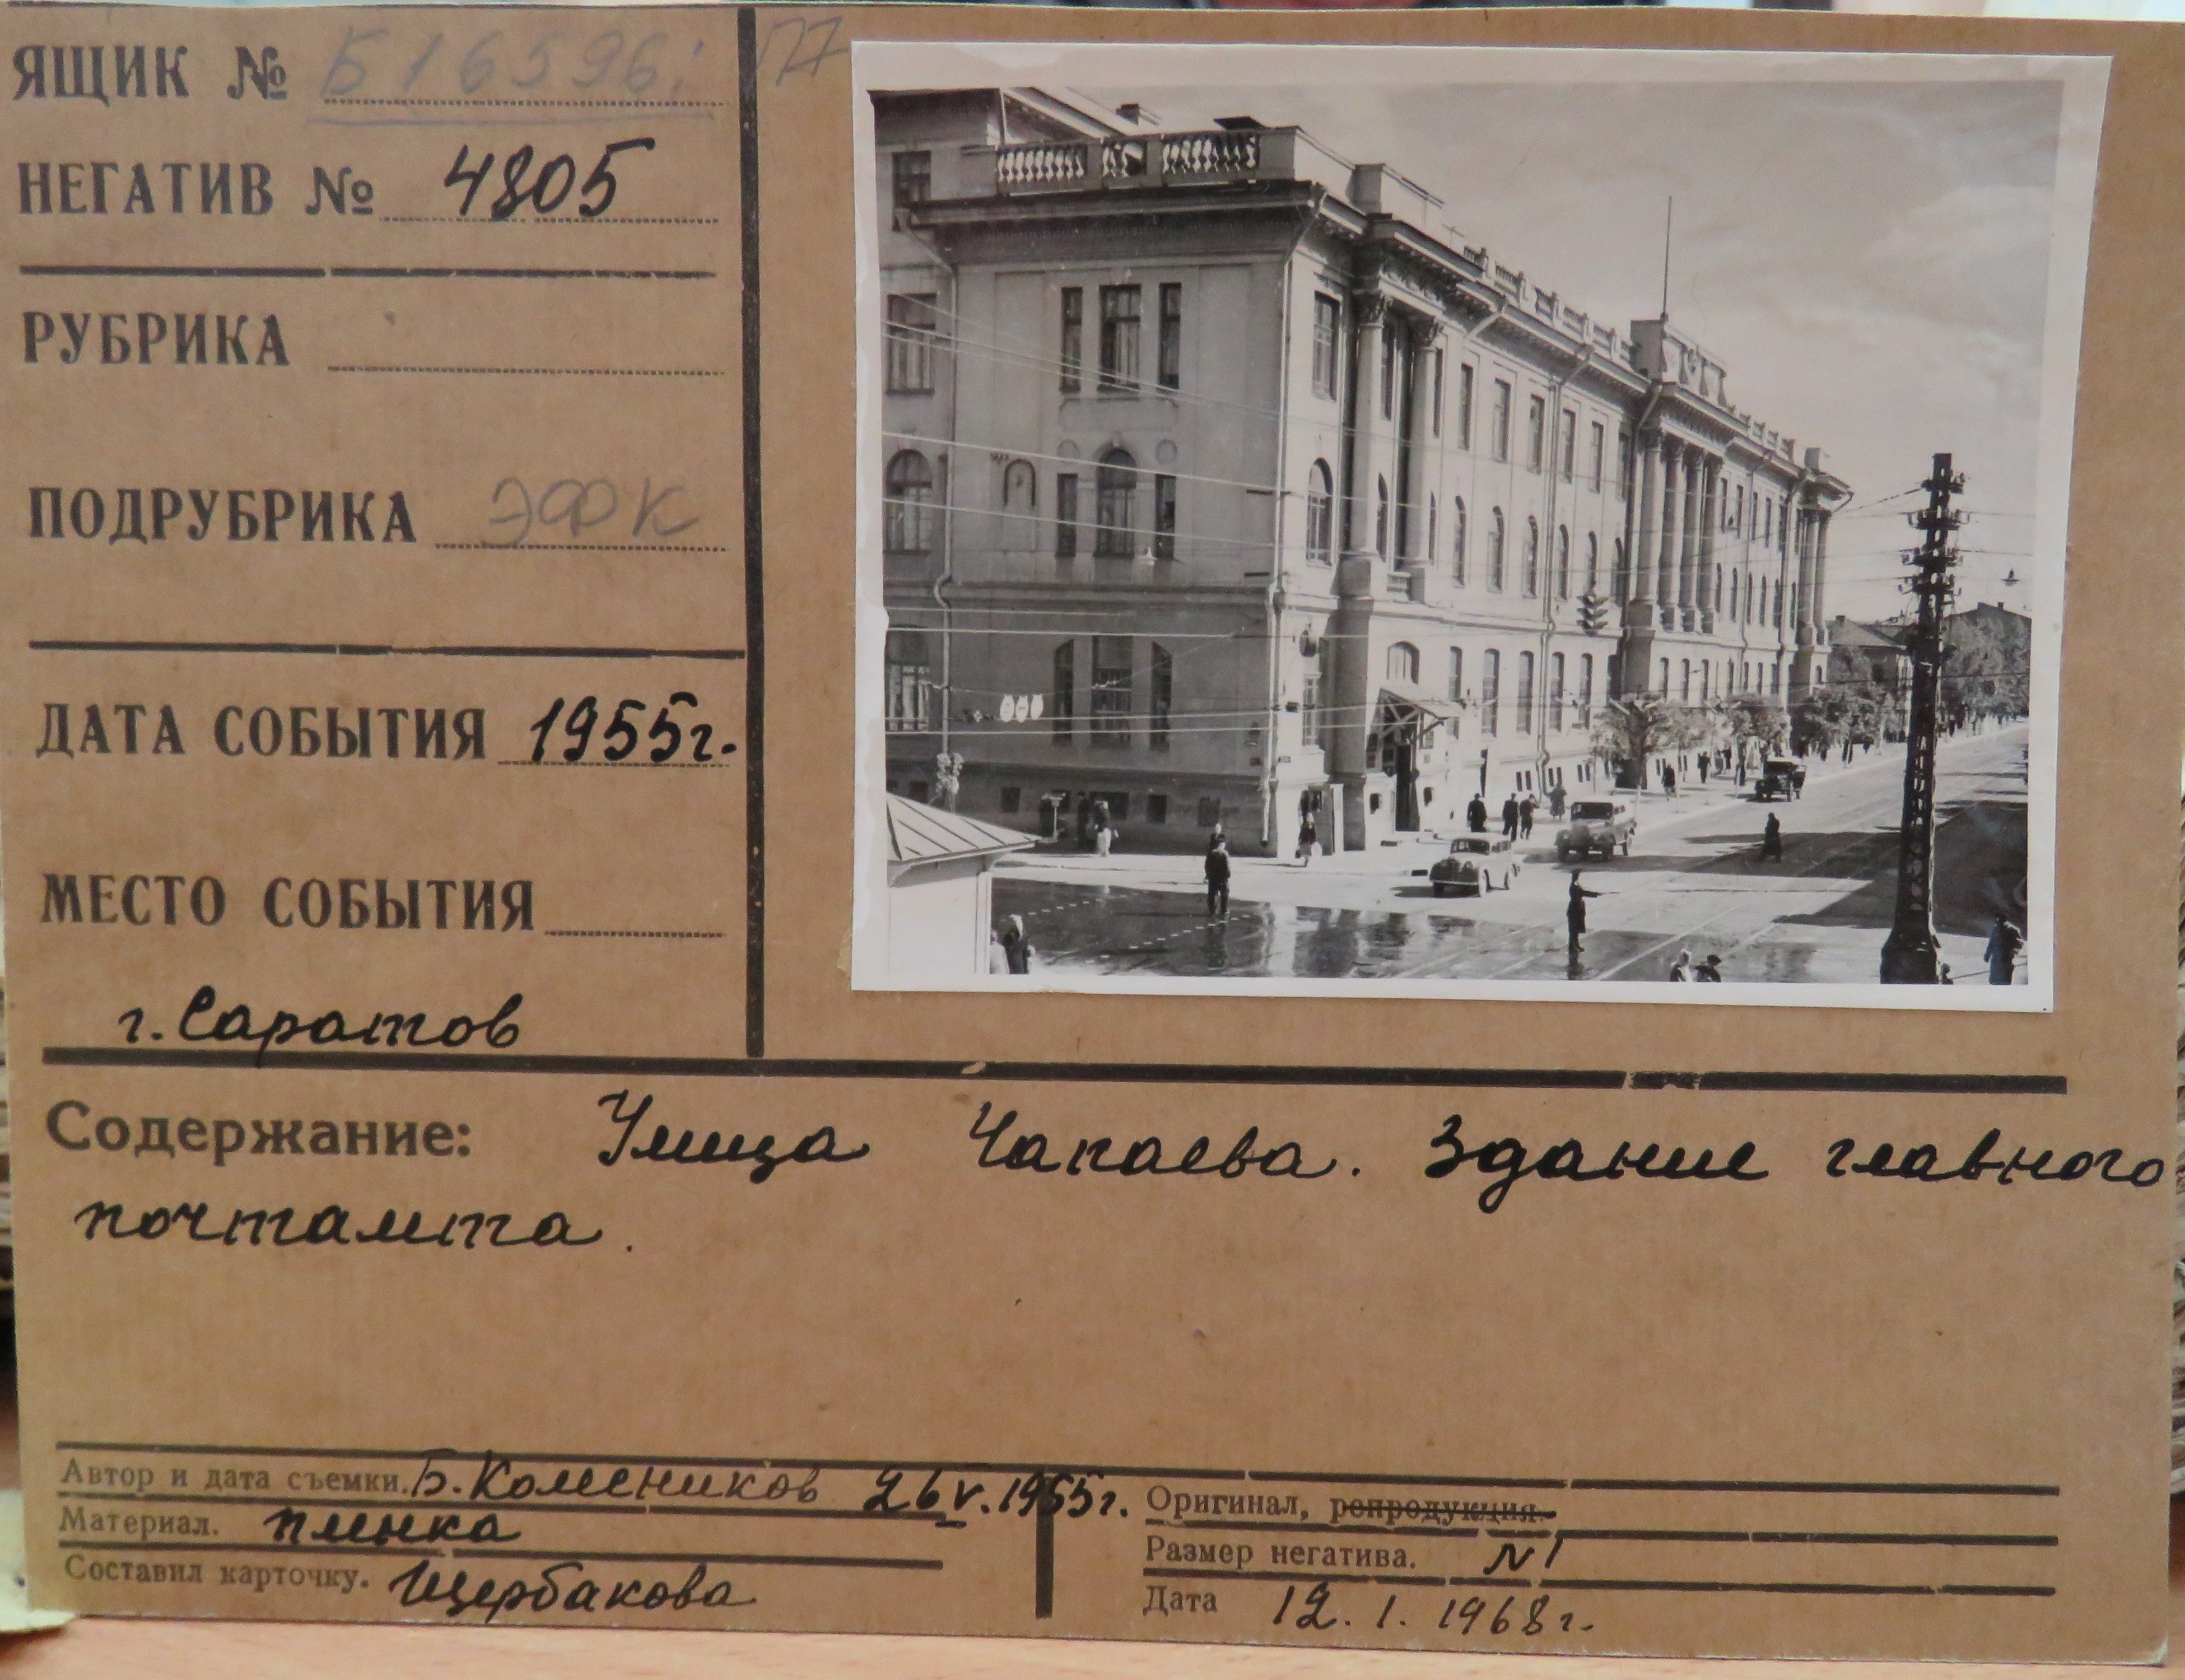 ЯЩИК № Б16596; П7
НЕГАТИВ № 4805
РУБРИКА
ПОДРУБРИКА ЭФК
ДАТА СОБЫТИЯ 1955г.
МЕСТО СОБЫТИЯ
г. Саратов
Содержание: Улица Чапаева. Здание главного
почтамта.
Автор и дата съемки. Б. Комеников 26 V. 1955г.
Материал. пленка
Составил карточку. Щербакова
Оригинал, репродукция.
Размер негатива. N1
Дата 12. 1. 1968г.